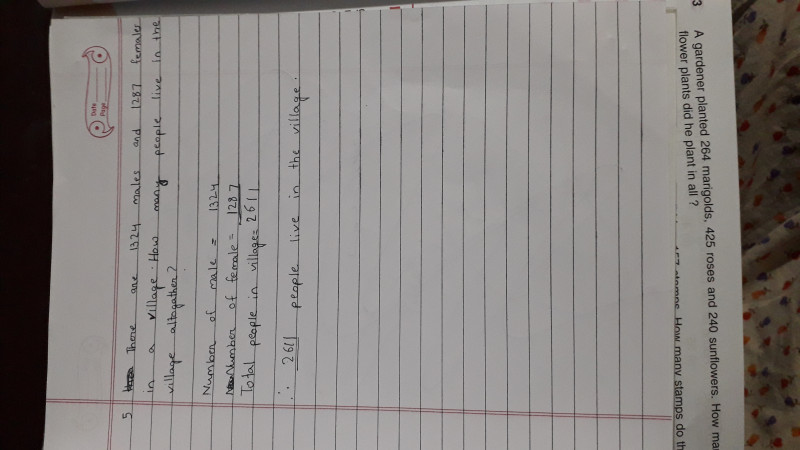 Date
Page
5 There are 1324 males and 1287 females
in a village. How many people live in the
village altogather?
Number of male = 1324
Number of female = 1287
Total people in village = 2611
∴ 2611 people live in the village.
3 A gardener planted 264 marigolds, 425 roses and 240 sunflowers. How
flower plants did he plant in all ?
157 stamps. How many stamps do